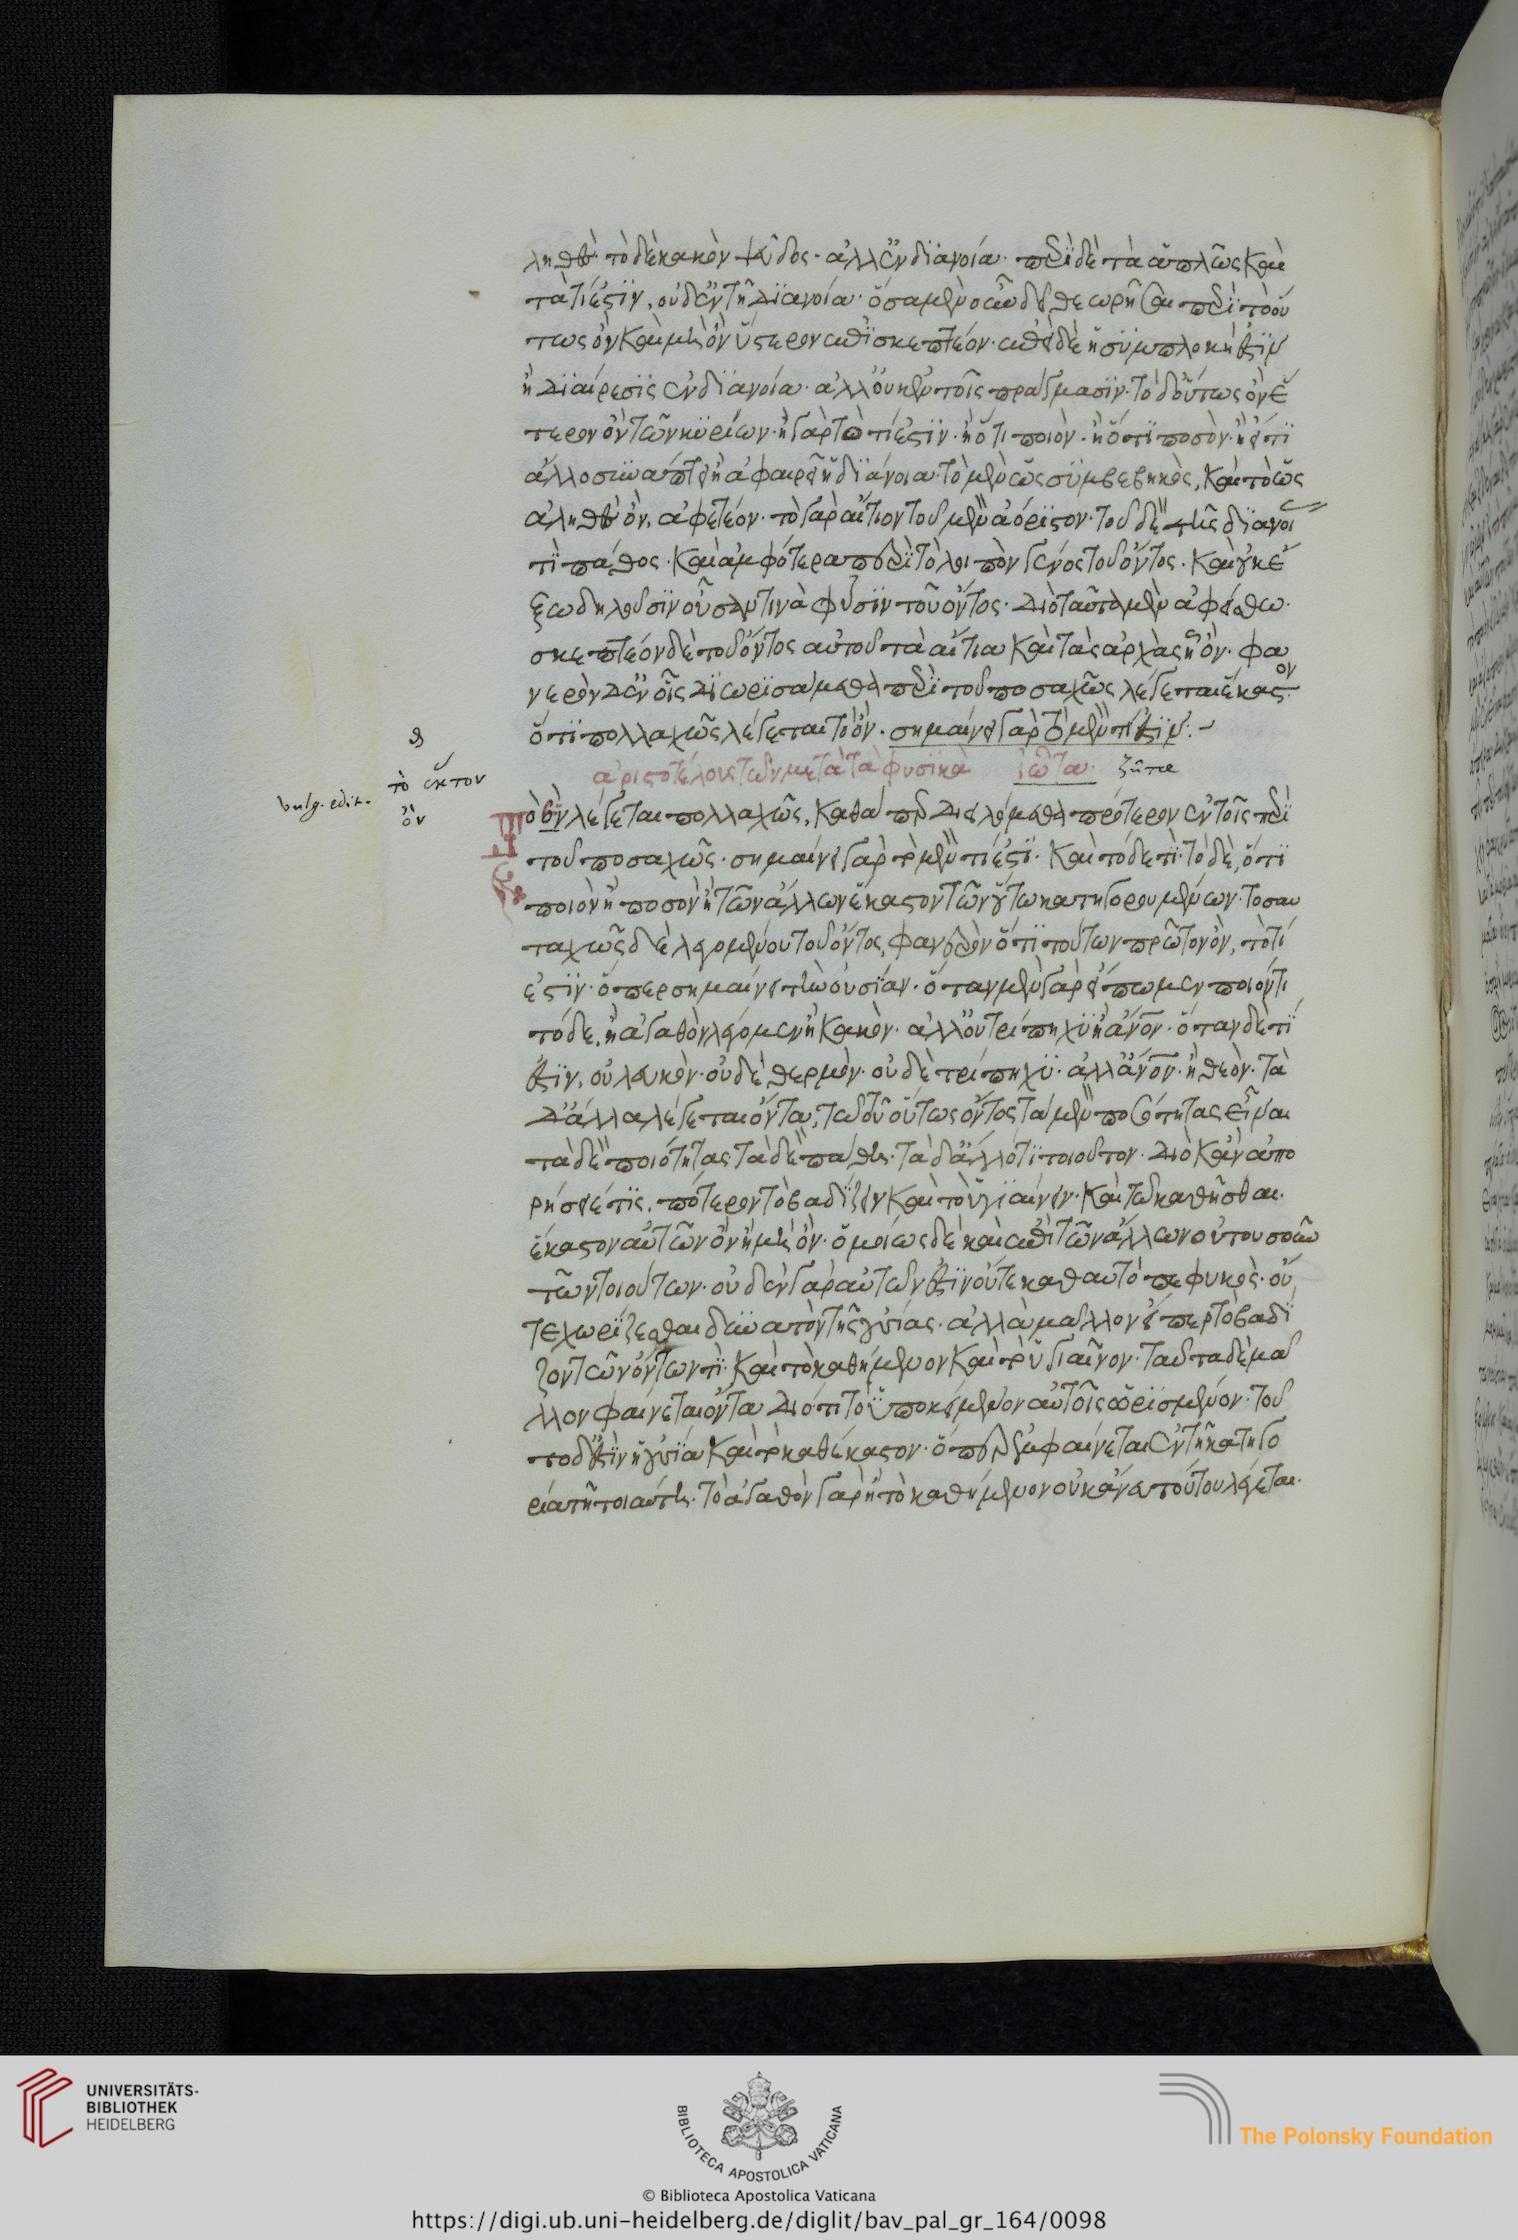 ληθὲς· τὸ δὲ κακὸν ψεῦδος· ἀλλ' ἐν διανοία· περὶ δὲ τὰ ἁπλῶς καὶ
τὰ τί ἐστϊν, οὐδ' ἐν τῆ διανοία· ὅσα μὲν οὖν δεῖ θεωρῆσαι περὶ τὸ οὕ
τως ὂν καὶ μὴ ὂν ὕστερον ἐπισκεπτέον· ἐπεὶ δὲ ἡ συμπλοκή ἐστιν
ἡ διαίρεσις ἐν διανοία· ἀλλ' οὐκ ἐν τοῖς πράγμασιν· τὸ δ' οὕτως ὂν ἕ
τερον ὂν τῶν κυρίων· ἢ γὰρ τὸ τί ἐστιν· ἢ ὅτι ποιὸν· ἢ ὅτι ποσὸν· ἢ εἴ τι
ἄλλο συνάπτει ἢ ἀφαιρεῖ ἡ διάνοια· τὸ μὲν ὡς συμβεβηκὸς, καὶ τὸ ὡς
ἀληθὲς ὂν, ἀφετέον· τὸ γὰρ αἴτιον τοῦ μὲν ἀόριστον· τοῦ δὲ τῆς διανοί
τὶ πάθος· καὶ ἀμφότερα περὶ τὸ λοιπὸν γένος τοῦ ὄντος· καὶ οὐκ ἔ
ξω δηλοῦσιν οὖσάν τινὰ φύσιν τοῦ ὄντος· διὸ ταῦτα μὲν ἀφείσθω·
σκεπτέον δὲ τοῦ ὄντος αὐτοῦ τὰ αἴτια καὶ τὰς ἀρχὰς ἧ ὄν· φα
νερὸν δ' ἐν οἷς διωρισάμεθα περὶ τοῦ ποσαχῶς λέγεται ἕκαστον
ὅτι πολλαχῶς λέγεται τὸ ὄν· σημαίνει γὰρ τὸ μὲν τί ἐστιν·
ἀριστοτέλους τῶν μετὰ τὰ φυσικὰ ἰῶτα· ζῆτα
vulg. edit. τὸ ἕκτον
ὂν
Τὸ ὂν λέγεται πολλαχῶς, καθάπερ διειλόμεθα πρότερον ἐν τοῖς περὶ
τοῦ ποσαχῶς· σημαίνει γὰρ τὸ μὲν τί ἐστι· καὶ τόδε τὶ· τὸ δὲ, ὅτι
ποιὸν ἢ ποσὸν ἢ τῶν ἄλλων ἕκαστον τῶν οὕτω κατηγορουμένων· τοσαυ
ταχῶς δὲ λεγομένου τοῦ ὄντος, φανερὸν ὅτι τούτων πρῶτον ὂν, τὸ τί
ἐστιν· ὅπερ σημαίνει τὴν οὐσίαν· ὅταν μὲν γὰρ εἴπωμεν ποιόν τι
τόδε, ἢ ἀγαθὸν λέγομεν ἢ κακὸν· ἀλλ' οὐ τρίπηχυ ἢ ἄνον· ὅταν δὲ τί
ἐστιν, οὐ λευκὸν· οὐδὲ θερμὸν· οὐδὲ τρίπηχυ· ἀλλ' ἄνον· ἢ θεὸν· τὰ
δ' ἄλλα λέγεται ὄντα, τῶ τοῦ οὕτως ὄντος τὰ μὲν ποσότητας εἶναι
τὰ δὲ ποιότητας· τὰ δὲ πάθη· τὰ δ' ἄλλό τι τοιοῦτον· διὸ κἂν ἀπο
ρήσειέ τις, πότερον τὸ βαδίζειν καὶ τὸ ὑγιαίνειν· καὶ τὸ καθῆσθαι·
ἕκαστον αὐτῶν ὂν ἢ μὴ ὂν· ὁμοίως δὲ καὶ ἐπὶ τῶν ἄλλων ὁτουοῦν
τῶν τοιούτων· οὐδὲν γὰρ αὐτῶν ἐστιν οὔτε καθ' αὑτὸ πεφυκὸς· οὔ
τε χωρίζεσθαι δυνατὸν τῆς οὐσίας· ἀλλὰ μᾶλλον εἴπερ τὸ βαδί
ζον τῶν ὄντων τὶ· καὶ τὸ καθήμενον καὶ τὸ ὑγιαῖνον· ταῦτα δὲ μᾶ
λλον φαίνεται ὄντα διότι τὸ ὑποκείμενον αὐτοῖς ὡρισμένον· τοῦ
το δ' ἐστὶν ἡ οὐσία καὶ τὸ καθ' ἕκαστον· ὅπερ ἐμφαίνεται ἐν τῆ κατηγο
ρία τῆ τοιαύτη· τὸ ἀγαθὸν γὰρ ἢ τὸ καθήμενον οὐκ ἄνευ τούτου λέγεται·
UNIVERSITÄTS-
BIBLIOTHEK
HEIDELBERG
BIBLIOTECA APOSTOLICA VATICANA
The Polonsky Foundation
© Biblioteca Apostolica Vaticana
https://digi.ub.uni-heidelberg.de/diglit/bav_pal_gr_164/0098